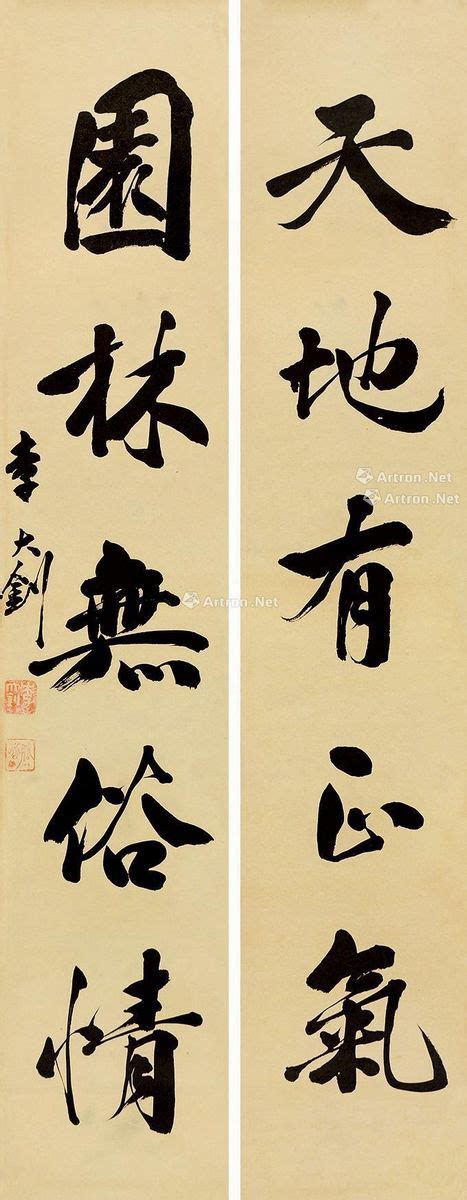 天地有正氣
園林無俗情
李大釗
Artron.Net
Artron.Net
Artron.Net